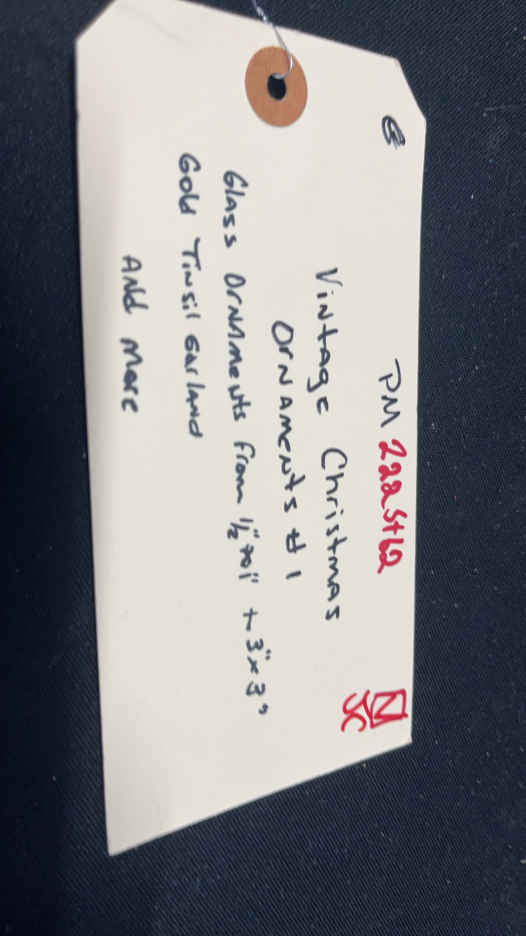 PM 222St62
Vintage Christmas
Ornaments #1
Glass Ornments from 1/2" to 1" + 3" x 3"
Gold Tinsil Garland
And More
JC